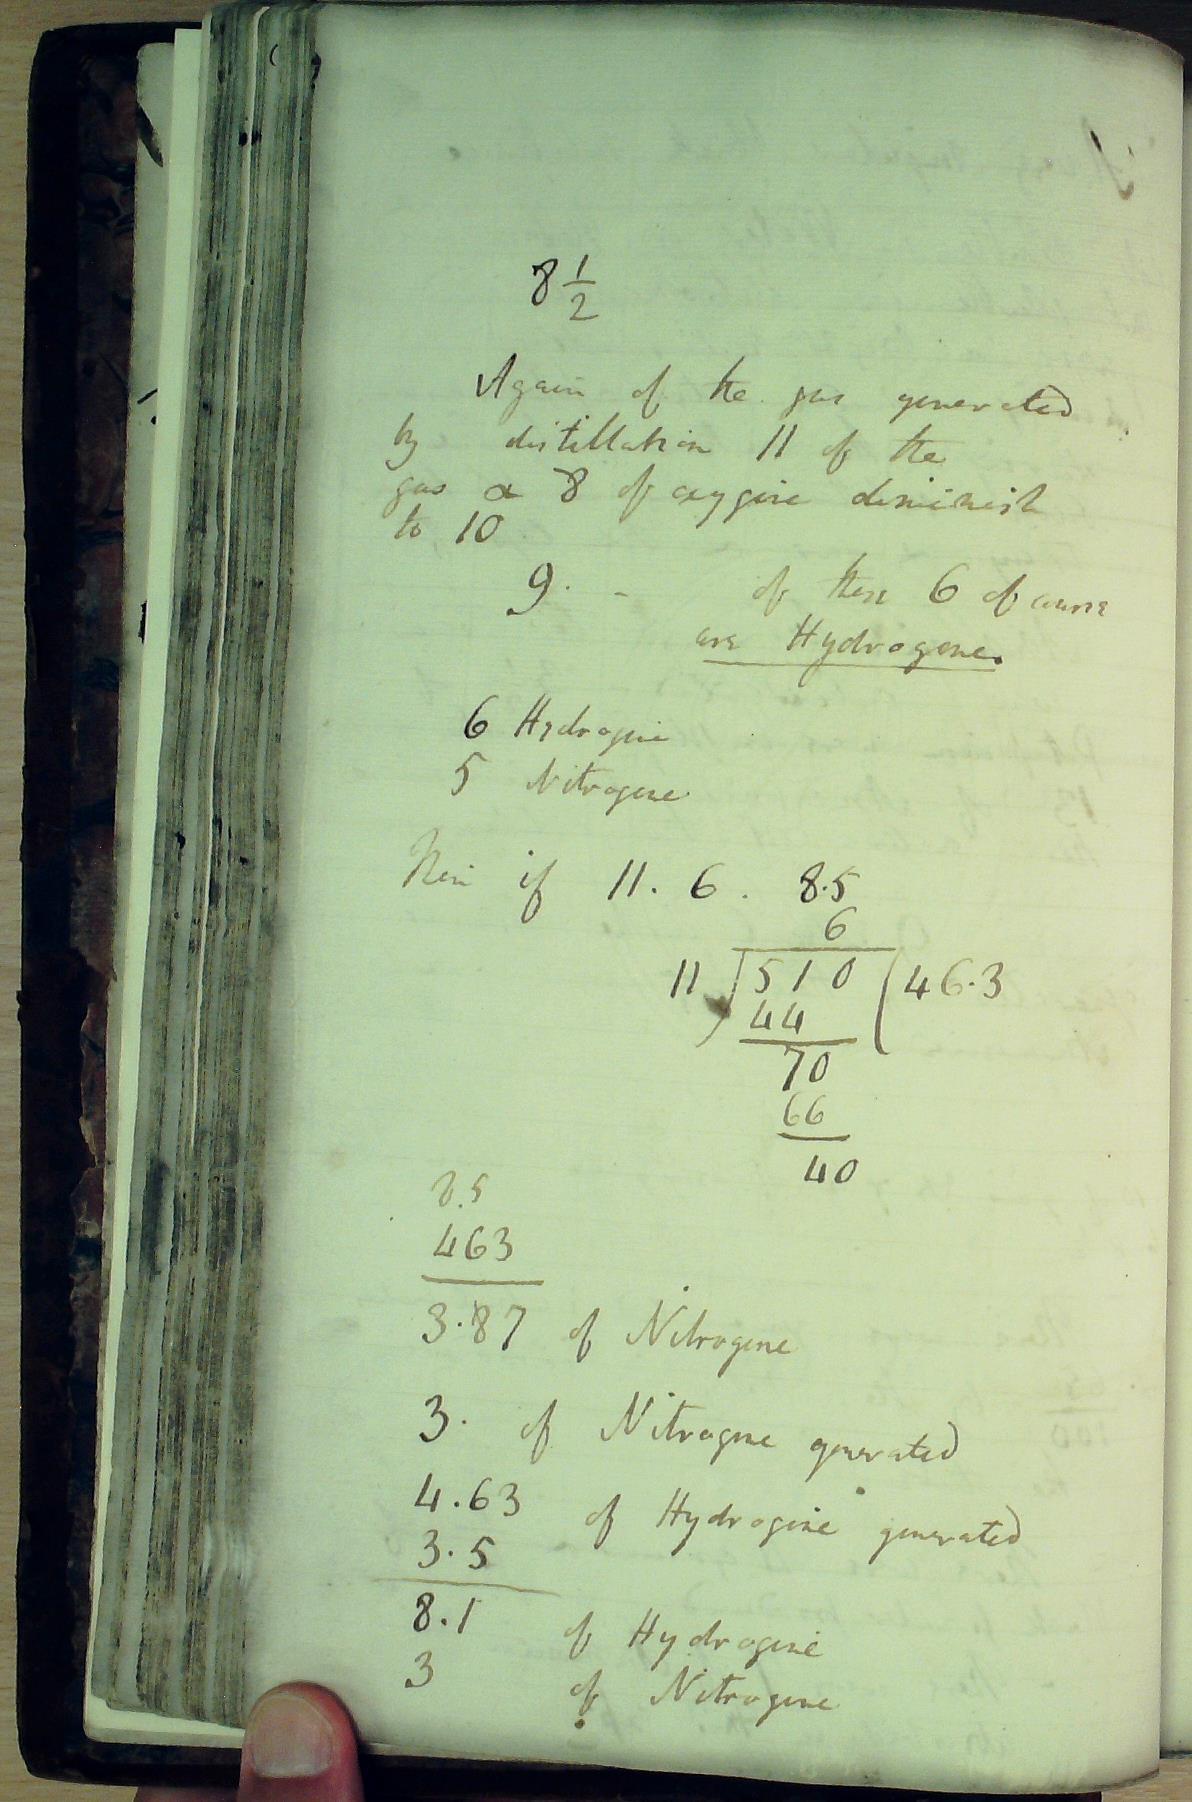 8 1/2
Again of the gas generated
by distillation 11 of the
gas & 8 of oxygene diminish
to 10
9. - of these 6 of course
are Hydrogene.
6 Hydrogene
5 Nitrogene
if 11. 6. 8.5
6
11 510 (46.3
44
70
66
40
8.5
463
3.87 of Nitrogene
3. of Nitrogene generated
4.63 of Hydrogene generated
3.5
8.1 of Hydrogene
3 of Nitrogene